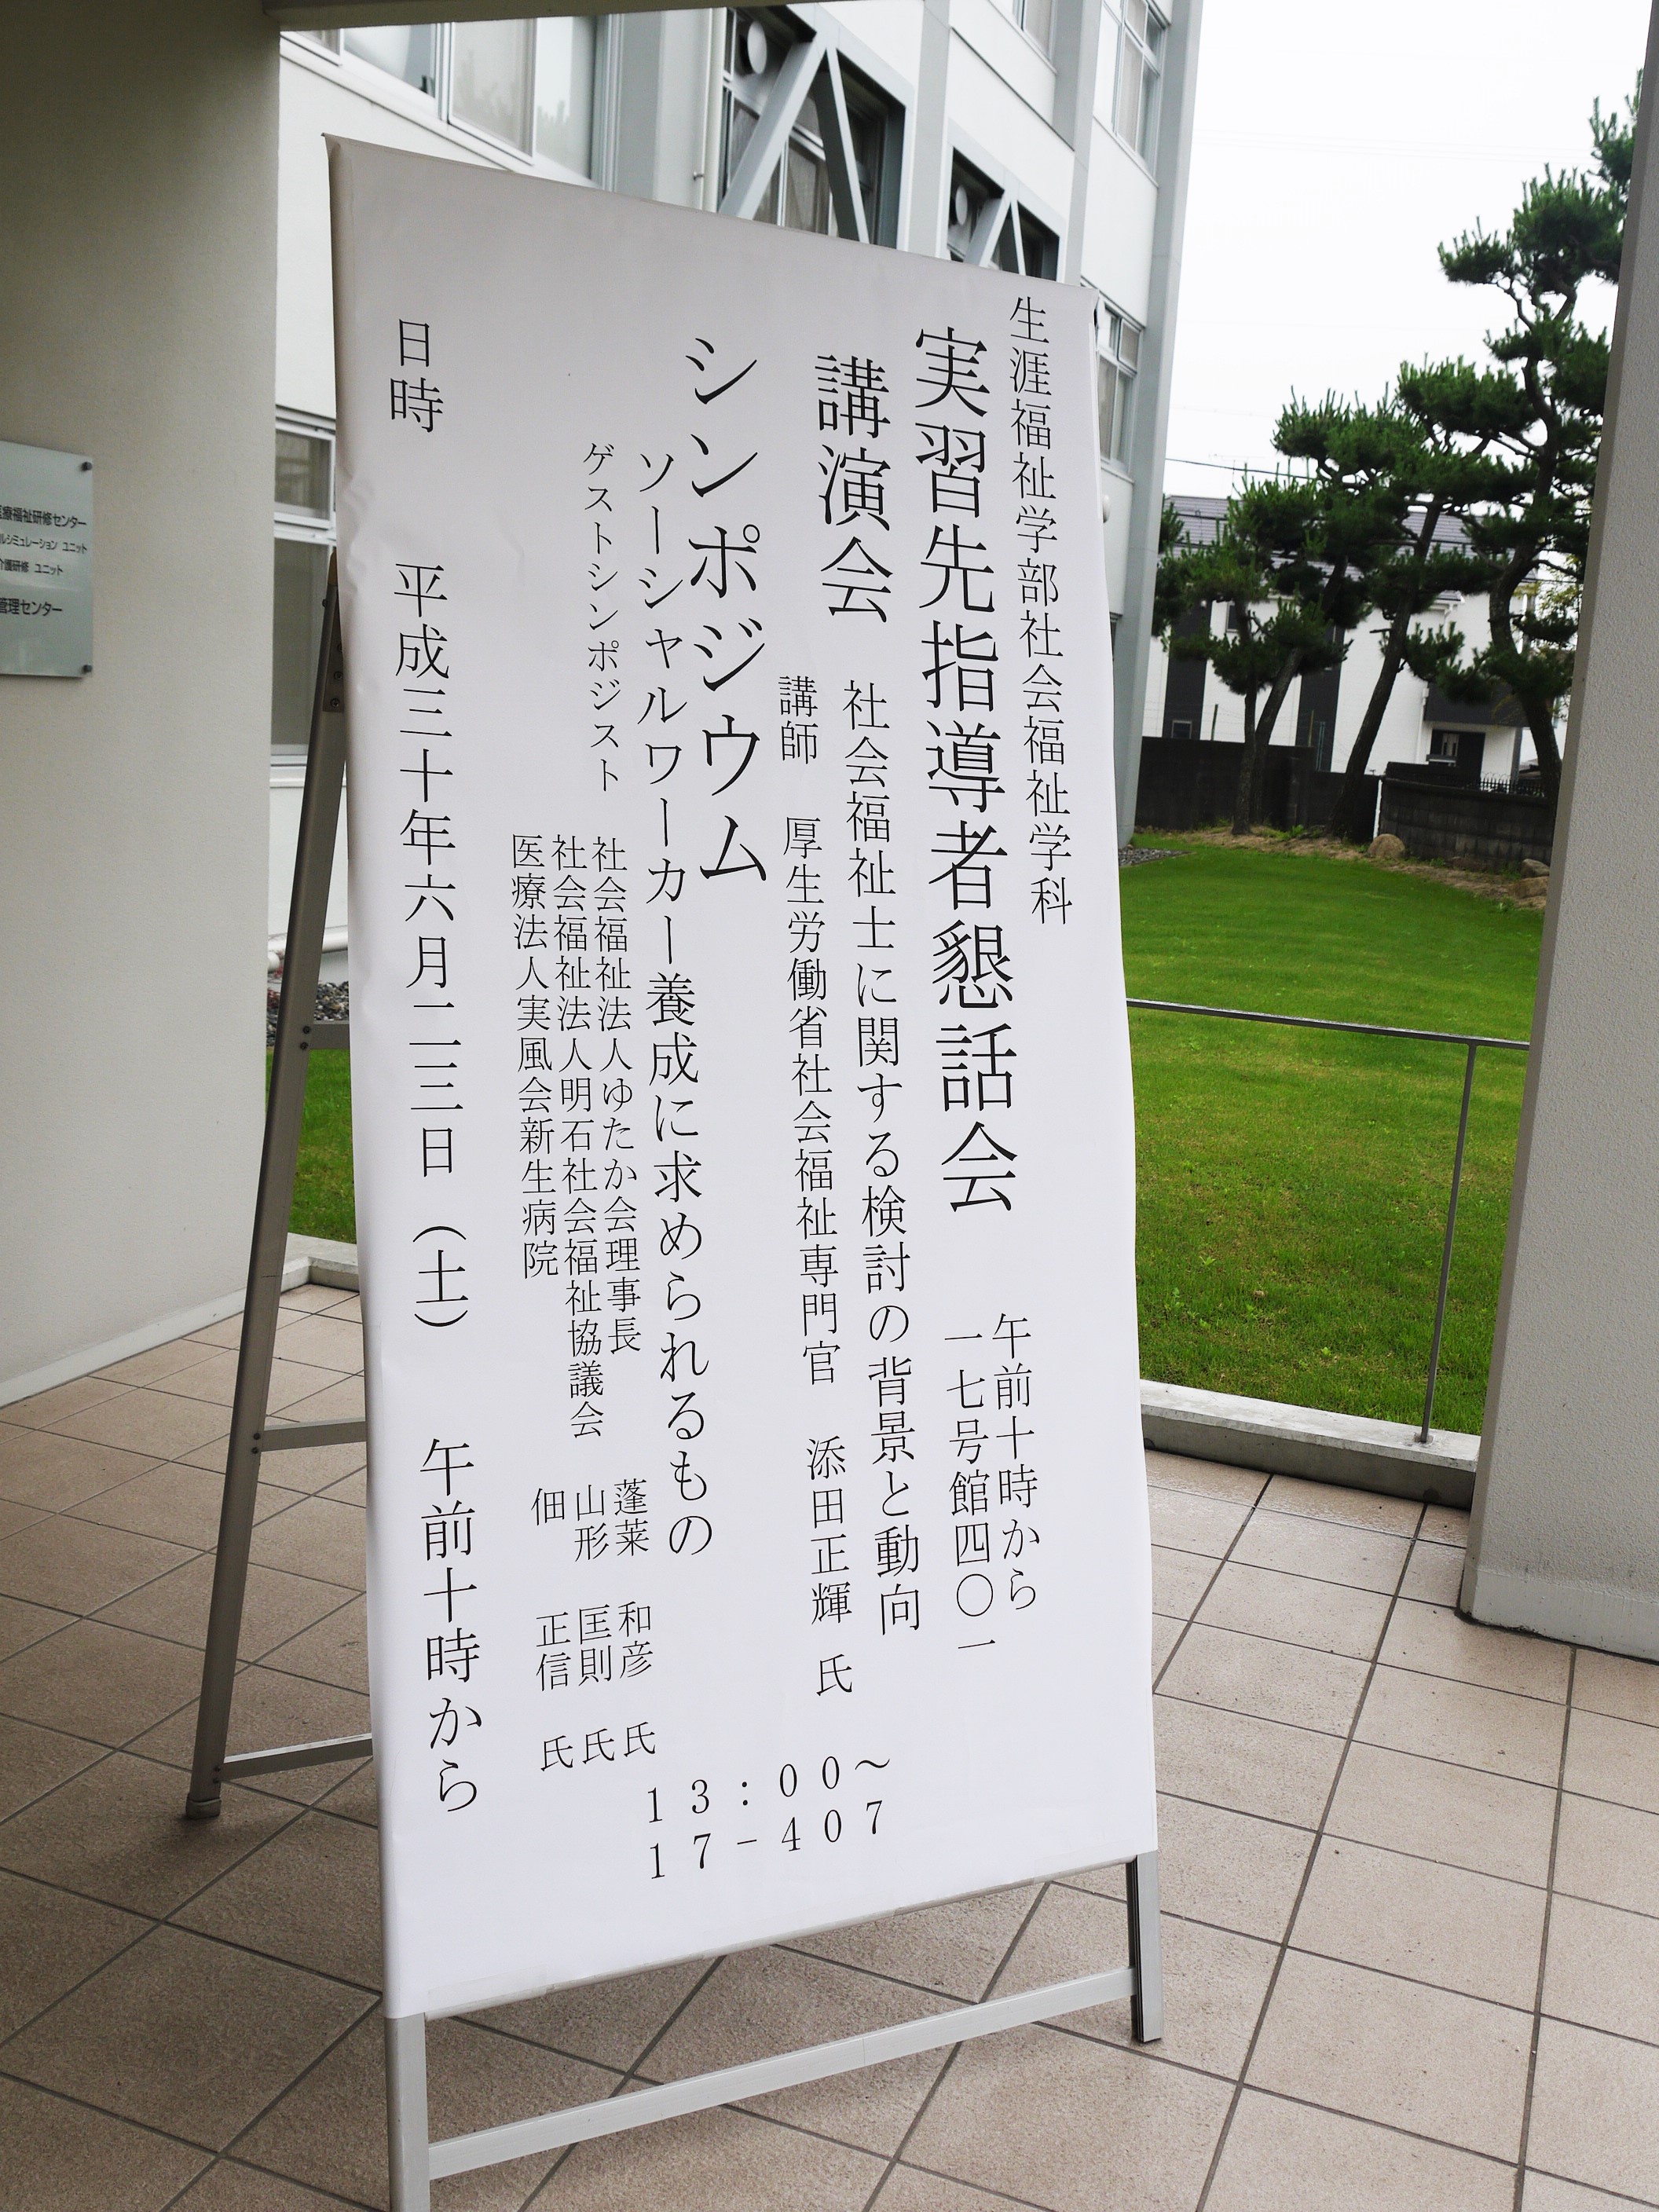 生涯福祉学部社会福祉学科
実習先指導者懇話会
午前十時から
一七号館四〇一
講演会
社会福祉士に関する検討の背景と動向
講師 厚生労働省社会福祉専門官 添田正輝 氏
シンポジウム
ソーシャルワーカー養成に求められるもの
ゲストシンポジスト
社会福祉法人ゆたか会理事長 蓬莱 和彦 氏
社会福祉法人明石社会福祉協議会 山形 匡則 氏
医療法人実風会新生病院 佃 正信 氏
13:00～
17-407
日時 平成三十年六月二三日（土） 午前十時から
医療福祉研修センター
ルシミュレーション ユニット
介護研修 ユニット
管理センター